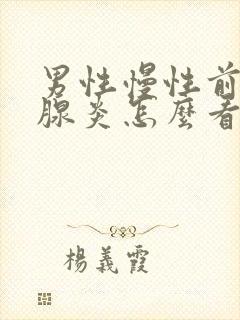 男性慢性前
腺炎怎麼看
楊義霞